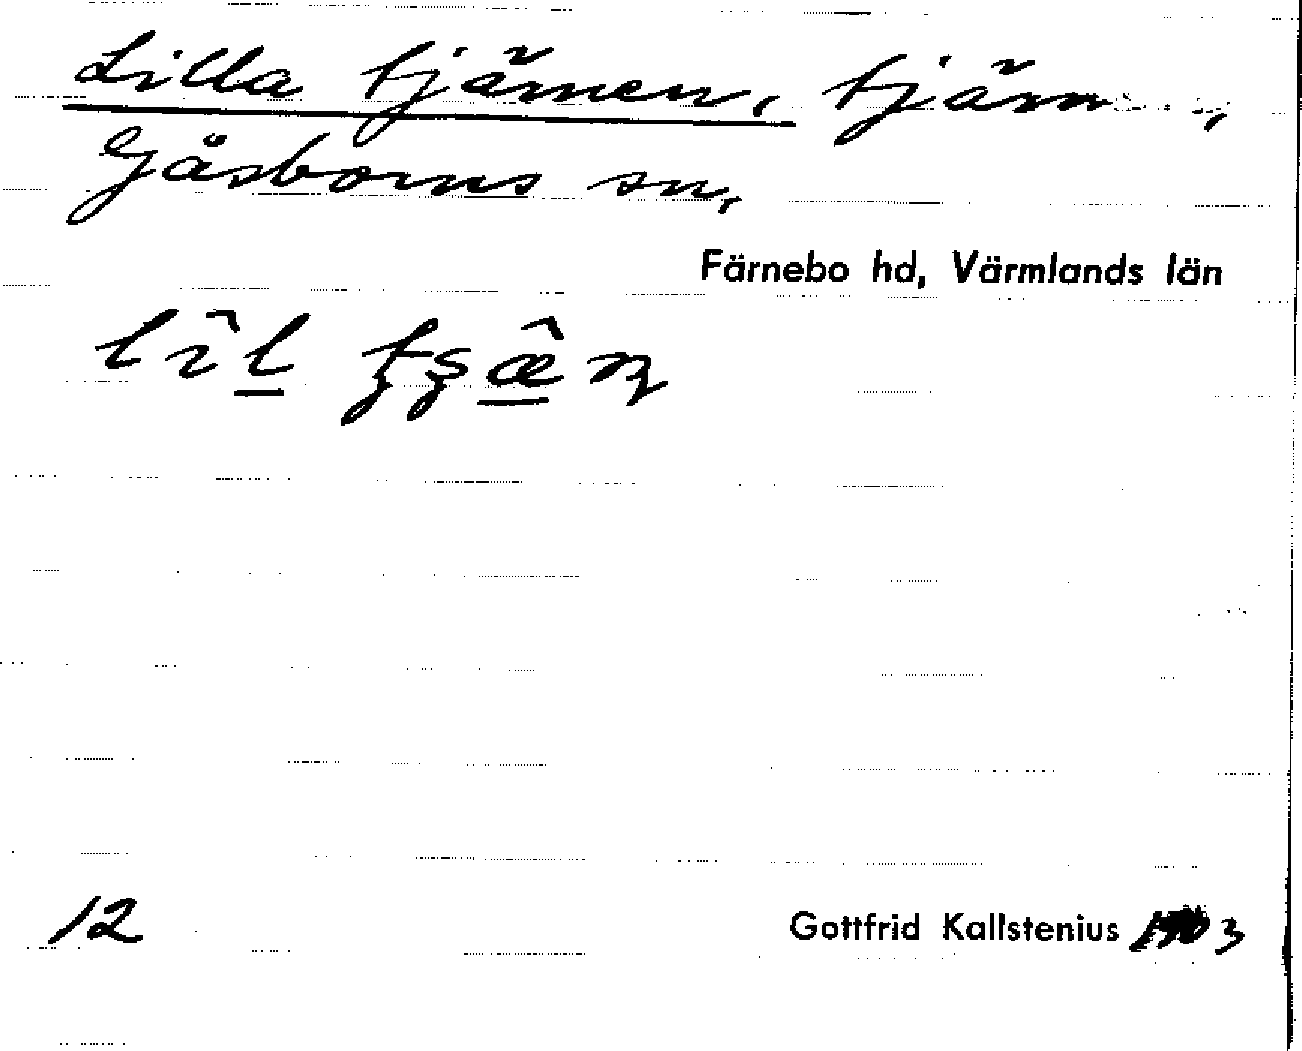 Lilla tjärnen, tjärn,
Gåsborns sn,
Färnebo hd, Värmlands län
12
Gottfrid Kallstenius